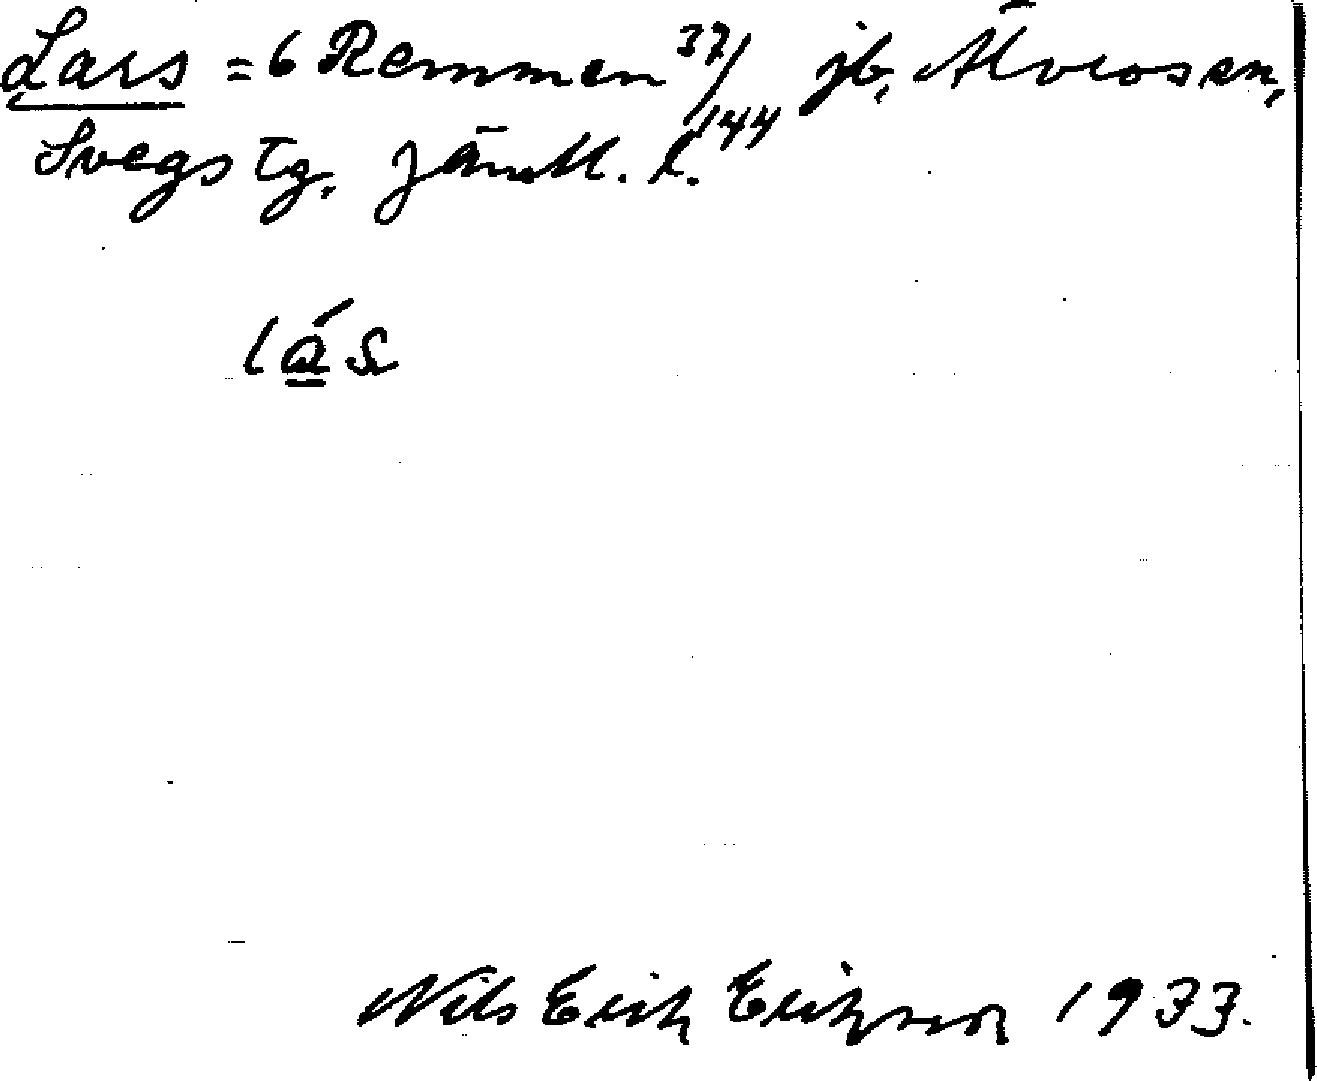 Lars = 6 Remmen 37/144 jb, Älvrosen,
Svegs tg. Jämtl. l.
lás
Nils Erik Erikson 1933.